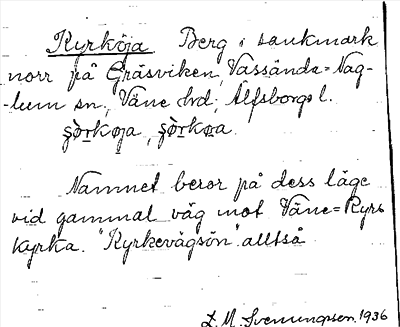 Kyrköja Berg i sankmark
norr på Gräsviken, Vassända=Nag-
-lum sn, Väne hd; Älfsborgs l.
şòrkøja, şòrkøa.
Namnet beror på dess läge
vid gammal väg mot Väne=Ryrs
kyrka. "Kyrkevägsön" alltså
L. M. Svenungsson. 1936